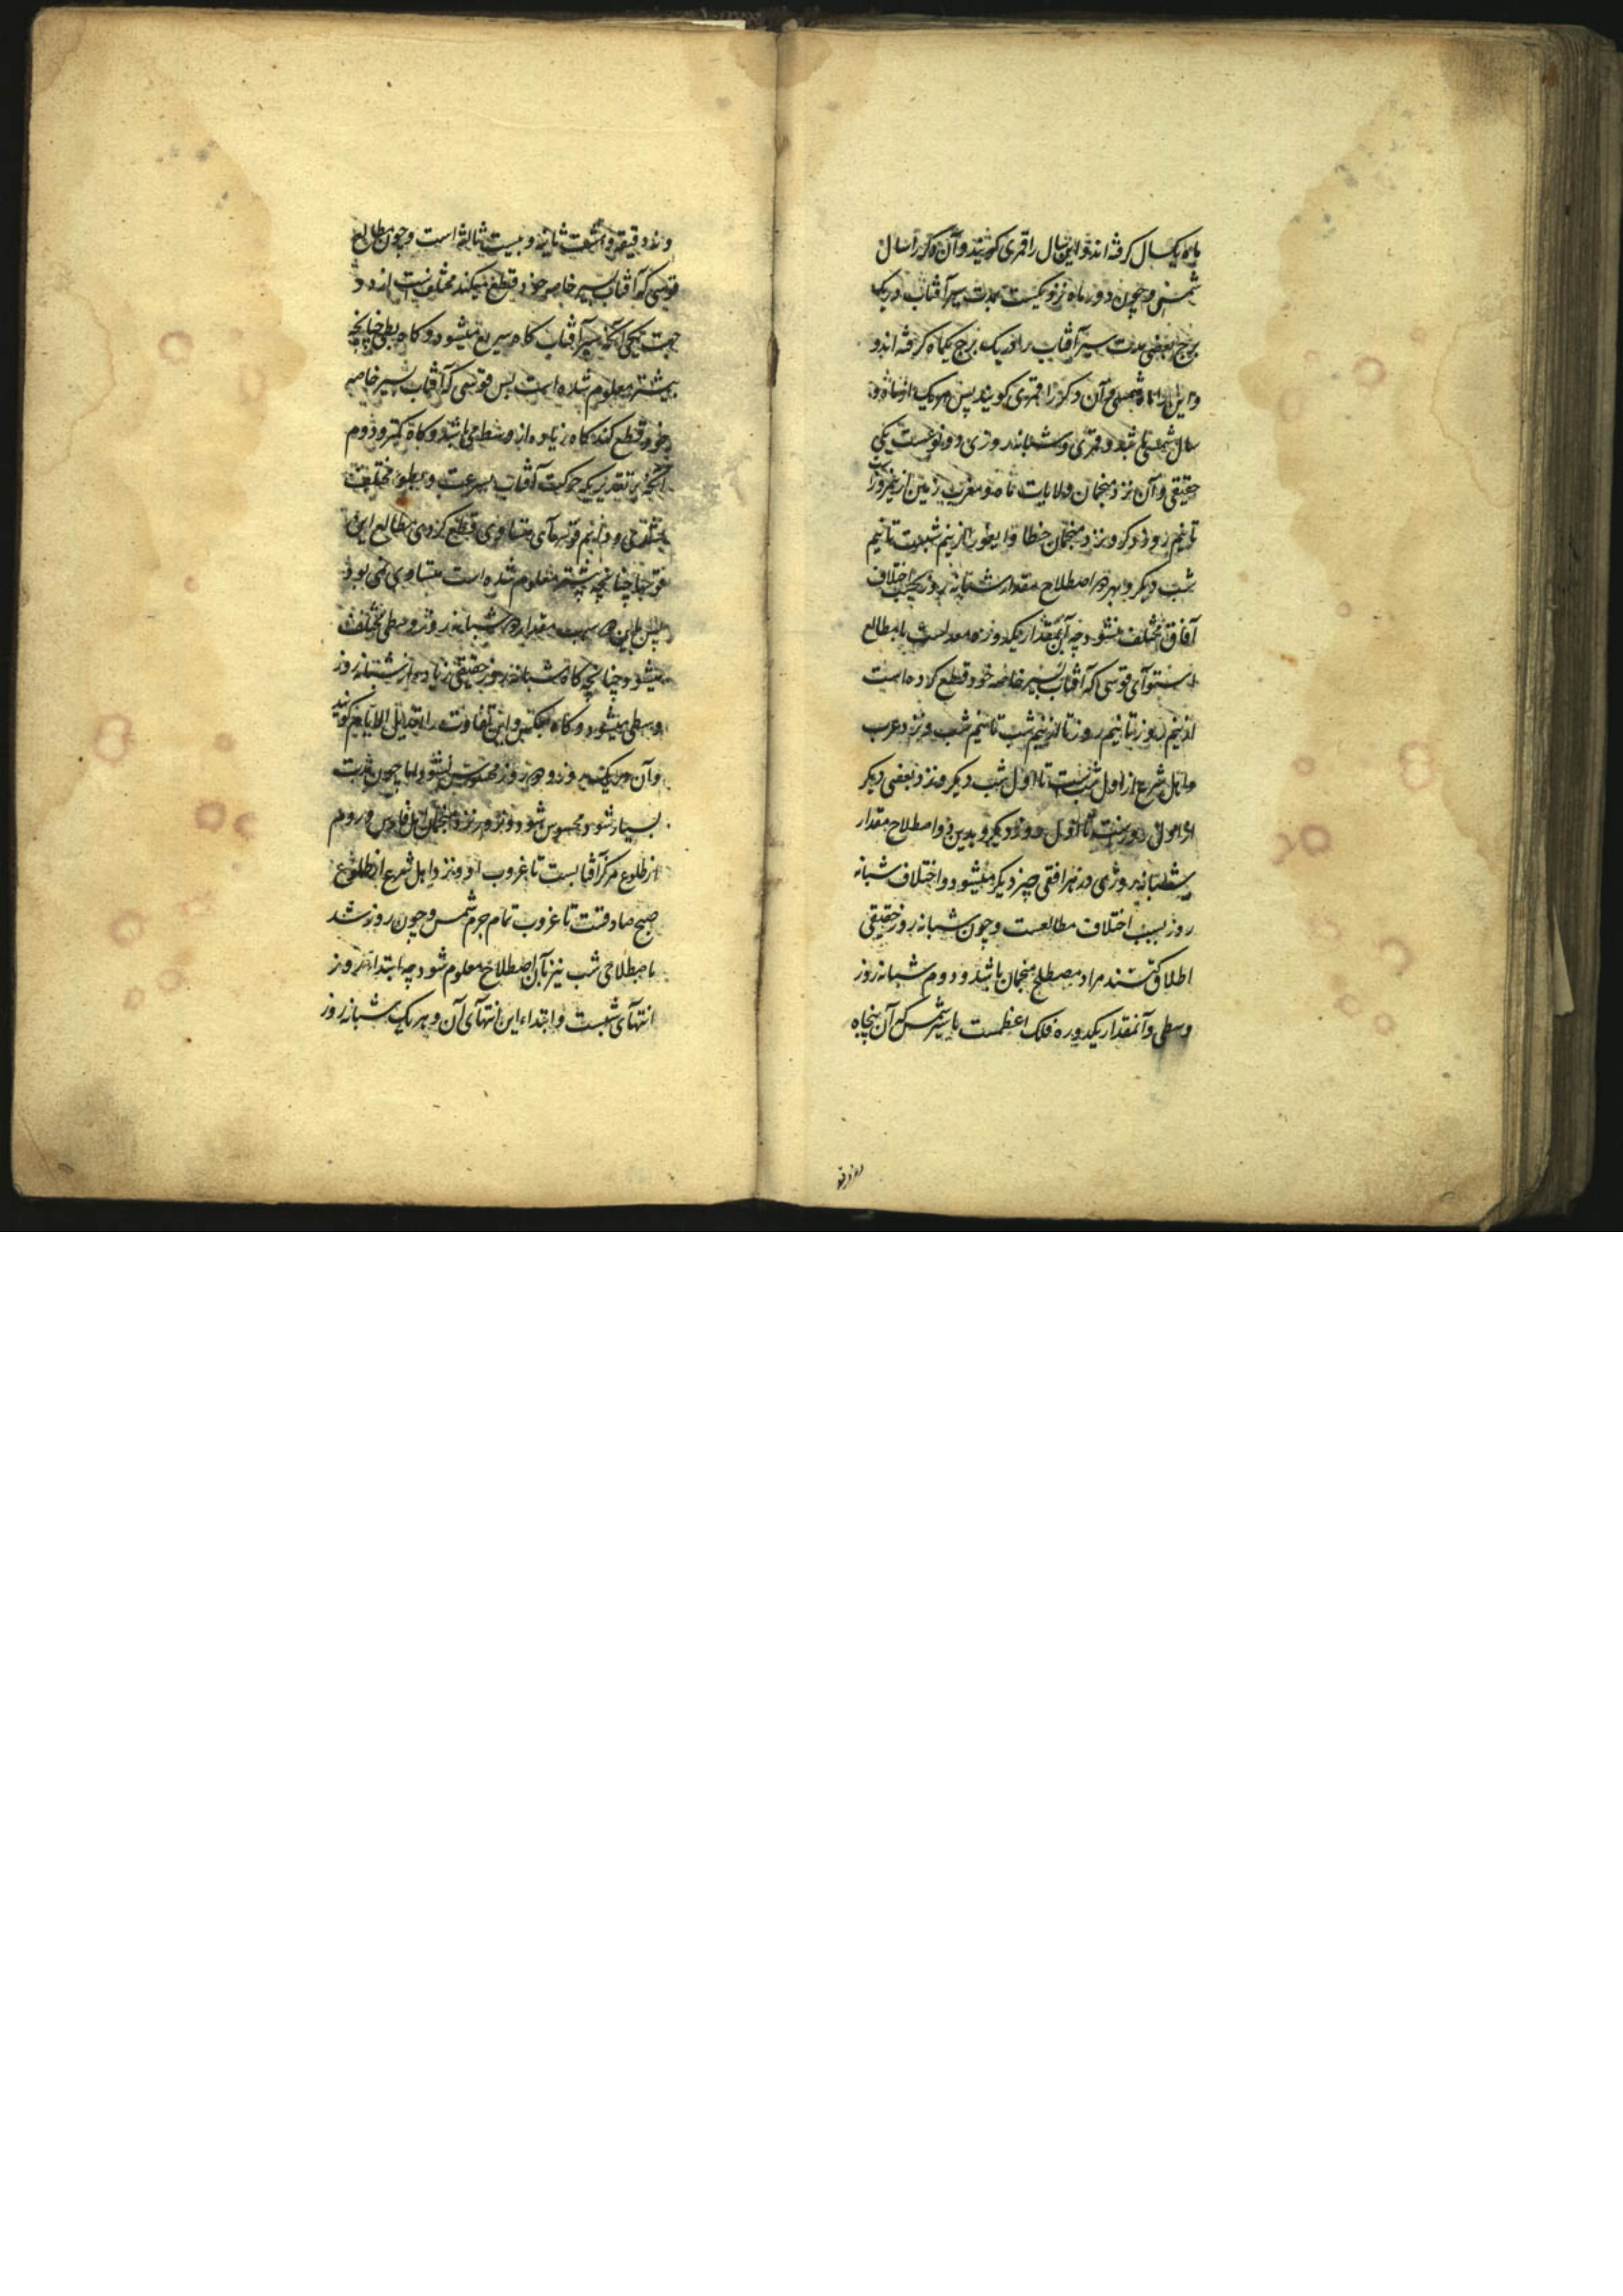 ماه یکسال کرفته اند و این سال را قمری کویند و آن دکر را سال
شمسی و چون دور ماه نزدیکست بمدت سیر آفتاب در یک
برج بعضی مدت سیر آفتاب را در یک برج یکماه کرفته اند و
و این را ماه شمسی و آن دکر را قمری کویند پس هر یک از ماه و
سال شمسی باشد و قمری و شبانه روزی دو نوعست یکی
حقیقی و آن نزد منجمان ولایات ما و مغرب زمین از نیم روز است
تا نیم روز دیکر و نزد منجمان خطا و ایغور از نیم شبست تا نیم
شب دیکر و بهر دو اصطلاح مقدار شبانه روز بحسب اختلاف
آفاق مختلف نشود چه آن مقدار یکدوره معدلست با مطالع
استوآی قوسی که آفتاب بسیر خاصه خود قطع کرده است
از نیم روز تا نیم روز تا از نیم شب تا نیم شب و نزد عرب
و اهل شرع از اول شبست تا اول شب دیکر و نزد بعضی دیکر
از اول روزست تا اول روز دیکر و بدین دو اصطلاح مقدار
شبانه روزی در هر افقی چیز دیکر میشود و اختلاف شبانه
روز بسبب اختلاف مطالعست و چون شبانه روز حقیقی
اطلاق کنند مراد مصطلح منجمان باشد و دوم شبانه روز
وسطی و آنمقدار یکدوره فلک اعظمست با سیر شمس که آن پنجاه
و نه دقیقه و هشت ثانیه و بیست ثالثه است و چون مطالع
قوسی که آفتاب بسیر خاصه خود قطع میکند مختلفست از دو
جهت یکی آنکه سیر آفتاب کاه سریع میشود و کاه بطی چنانچه
پیشتر معلوم شده است پس قوسی که آفتاب بسیر خاصه
خود قطع کند کاه زیاده از وسطی می باشد و کاه کمتر و دوم
آنکه بر تقدیری که حرکت آفتاب بسرعت و بطوء مختلف
نشدی و دایم قوسهآی متساوی قطع کردی مطالع این
قوسها چنانچه پیشتر معلوم شده است متساوی نمی بود
پس باین دو سبب مقدار شبانه روز وسطی مختلف
میشود چنانچه کاه شبانه روز حقیقی زیاده از شبانه روز
وسطی میشود و کاه بعکس و این تفاوت را تعدیل الایام کویند
و آن در یک روز و دو روز محسوس نشود اما چون مدت
بسیار شود محسوس شود و روز نزد منجمان اهل فارس و روم
از طلوع مرکز آفتابست تا غروب او و نزد اهل شرع از طلوع
صبح صادقست تا غروب تمام جرم شمس و چون روز شد
باصطلاحی شب نیز بآن اصطلاح معلوم شود چه ابتداء روز
انتهآی شبست و ابتداء این انتهآی آن و هر یک شبانه روز